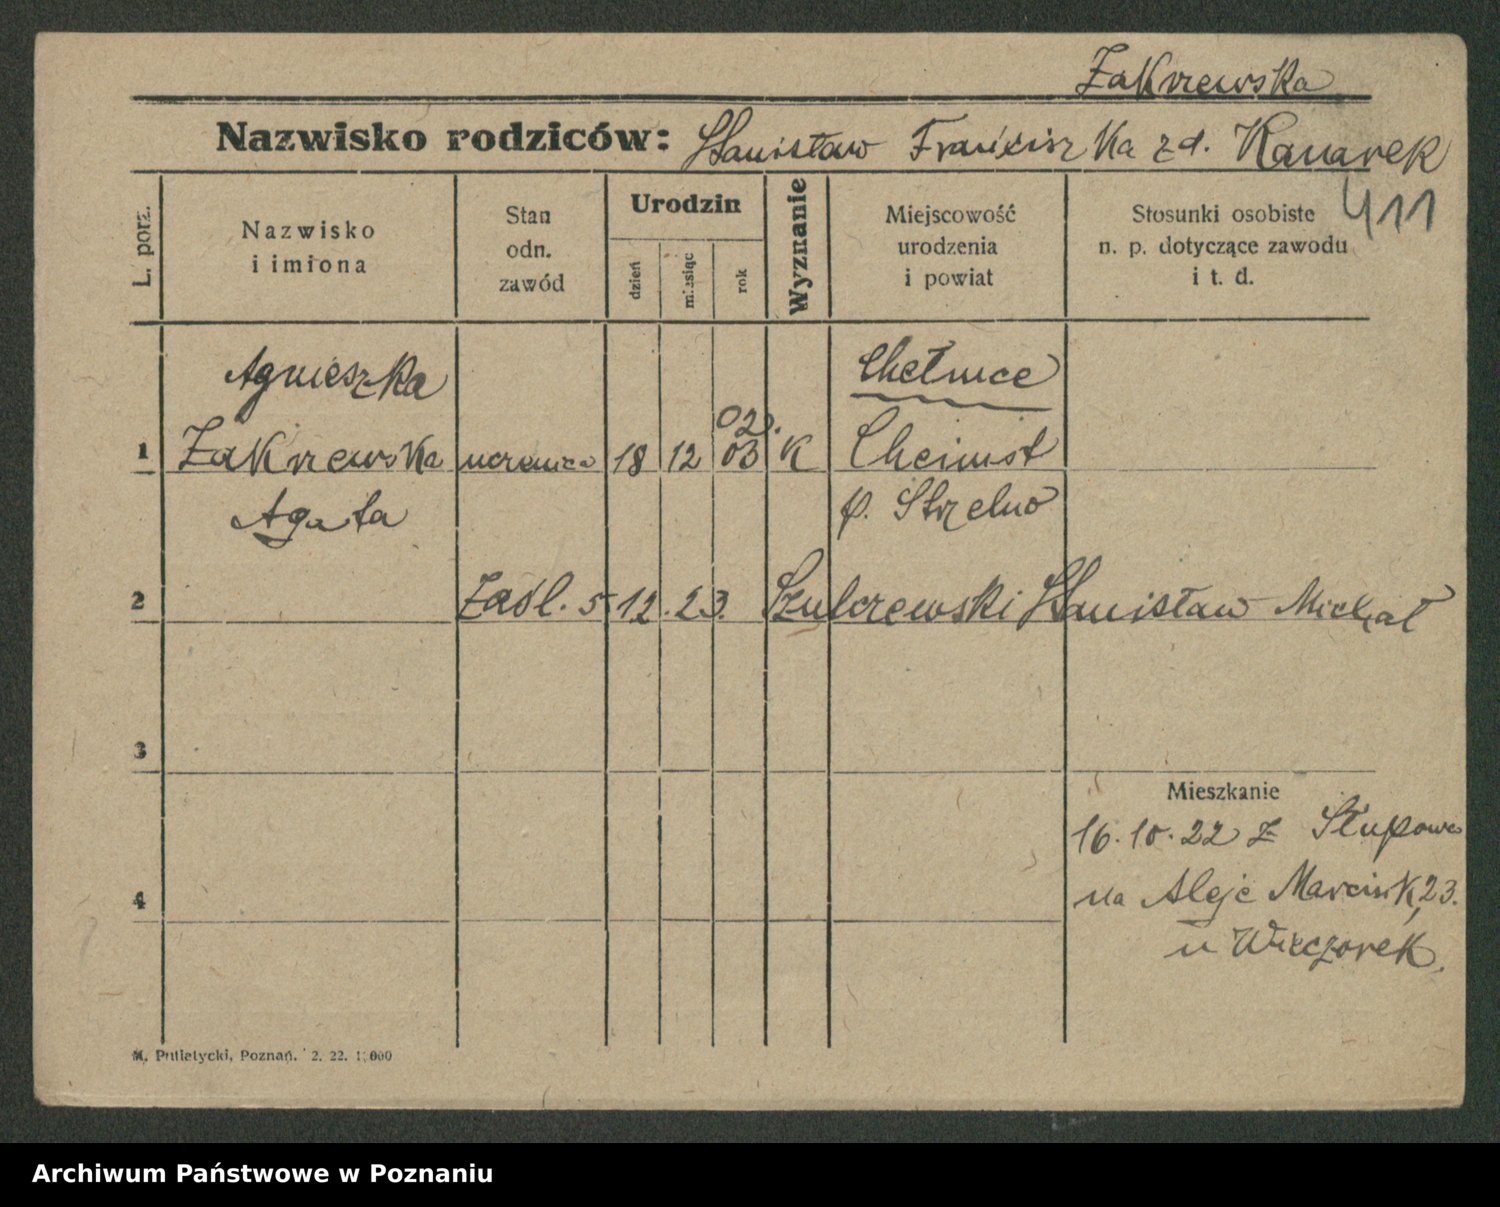 Zakrzewska
Nazwisko rodziców: Stanisław Franciszka zd. Kanarek
411
L. porz.
Nazwisko i imiona
Stan odn. zawód
Urodzin
dzień
miesiąc
rok
Wyznanie
Miejscowość urodzenia i powiat
Stosunki osobiste n. p. dotyczące zawodu i t. d.
Agnieszka
Chełmce
02.
1 Zakrzewska uczenica 18 12 03 K
Agata
p. Strzelno
2 Zaśl. 5.12.23. Szulczewski Stanisław Michał
3
Mieszkanie
16.10.22 z Słupowa
4 na Aleje Marcink. 23.
u Wieczorek.
Poznań. 2. 22.
Archiwum Państwowe w Poznaniu